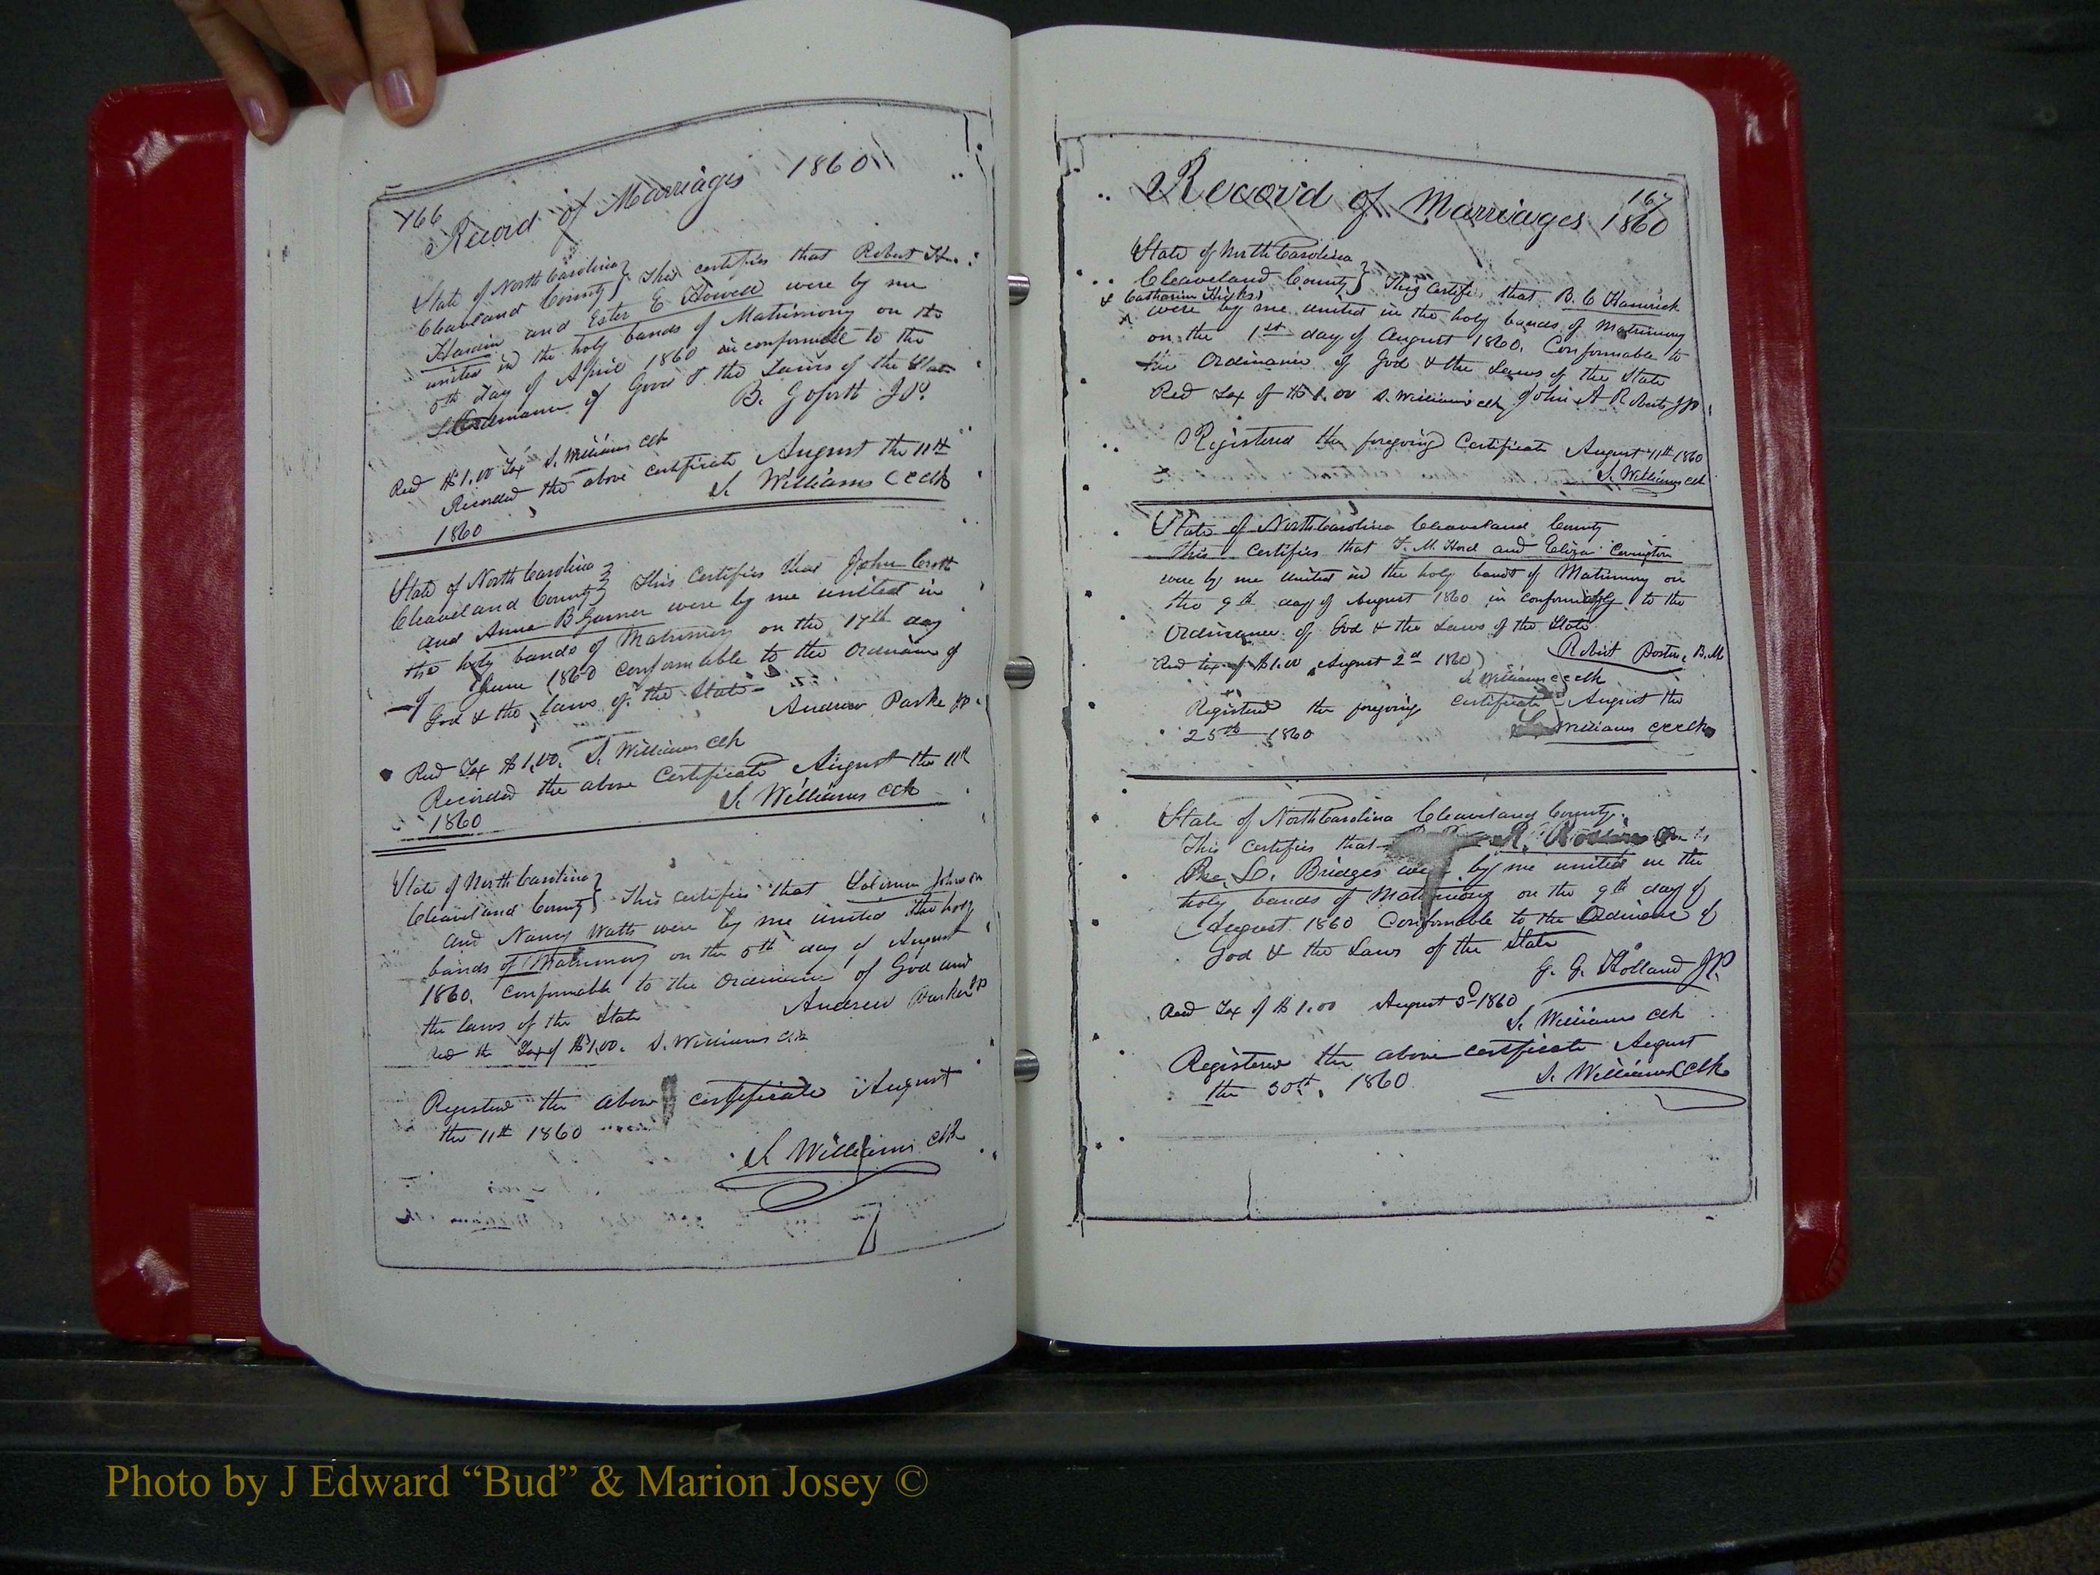 166
Record of Marriages 1860
State of North Carolina
Cleaveland County } This certifies that Robert H.
Hardin and Ester E Howell were by me
united in the holy bands of Matrimony on the
5th day of April 1860 in conformable to the
Ordinance of God & the Laws of the State
B. Goforth J.P.
Recd $1.00 Tax S. Williams Clk
Recorded the above certificate August the 11th
1860
S. Williams CCClk
State of North Carolina
Cleaveland County } This Certifies that John
and Anna B were by me united in
the holy bands of Matrimony on the 17th day
of June 1860 Conformable to the Ordinance of
God & the Laws of the State
Andrew Parke JP.
Recd Tax $1.00. S. Williams Clk
Recorded the above Certificate August the 11th
1860
S. Williams Clk
State of North Carolina
Cleaveland County } This certifies that Johnson
and Nancy Watts were by me united the holy
bands of Matrimony on the 5th day of August
1860. Conformable to the Ordinance of God and
the laws of the State
Andrew Parker JP
Recd the Tax of $1.00. S. Williams Clk
Registered the above certificate August
the 11th 1860
S Williams Clk
167
Record of Marriages 1860
State of North Carolina
Cleaveland County } This Certifies that B. C Hamrick
& Catharine
were by me united in the holy bands of Matrimony
on the 1st day of August 1860. Conformable to
the Ordinance of God & the Laws of the State
Recd Tax of $1.00 S. Williams Clk John A Roberts JP.
Registered the foregoing Certificate August 11th 1860
S. Williams Clk
State of North Carolina Cleaveland County
this certifies that T. M. Hord and Eliza
were by me united in the holy bands of Matrimony on
the 9th day of August 1860 in conformity to the
Ordinance of God & the Laws of the State
Robert B.M
Recd tax of $1.00 August 2d 1860
S Williams CCClk
Registered the foregoing certificate August the
25th 1860
Williams CCClk
State of North Carolina Cleaveland County.
This certifies that R.
L. Bridges were by me united in the
holy bands of Matrimony on the 9th day of
August 1860 Conformable to the Ordinance of
God & the Laws of the State
G. G. Holland JP.
Recd Tax of $1.00 August 3d 1860
S. Williams Clk
Registered the above certificate August
the 30th. 1860
S. Williams CClk
Photo by J Edward “Bud” & Marion Josey ©